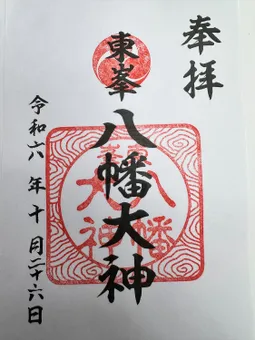 奉拝
東峯
八幡大神
令和六年十月二十六日